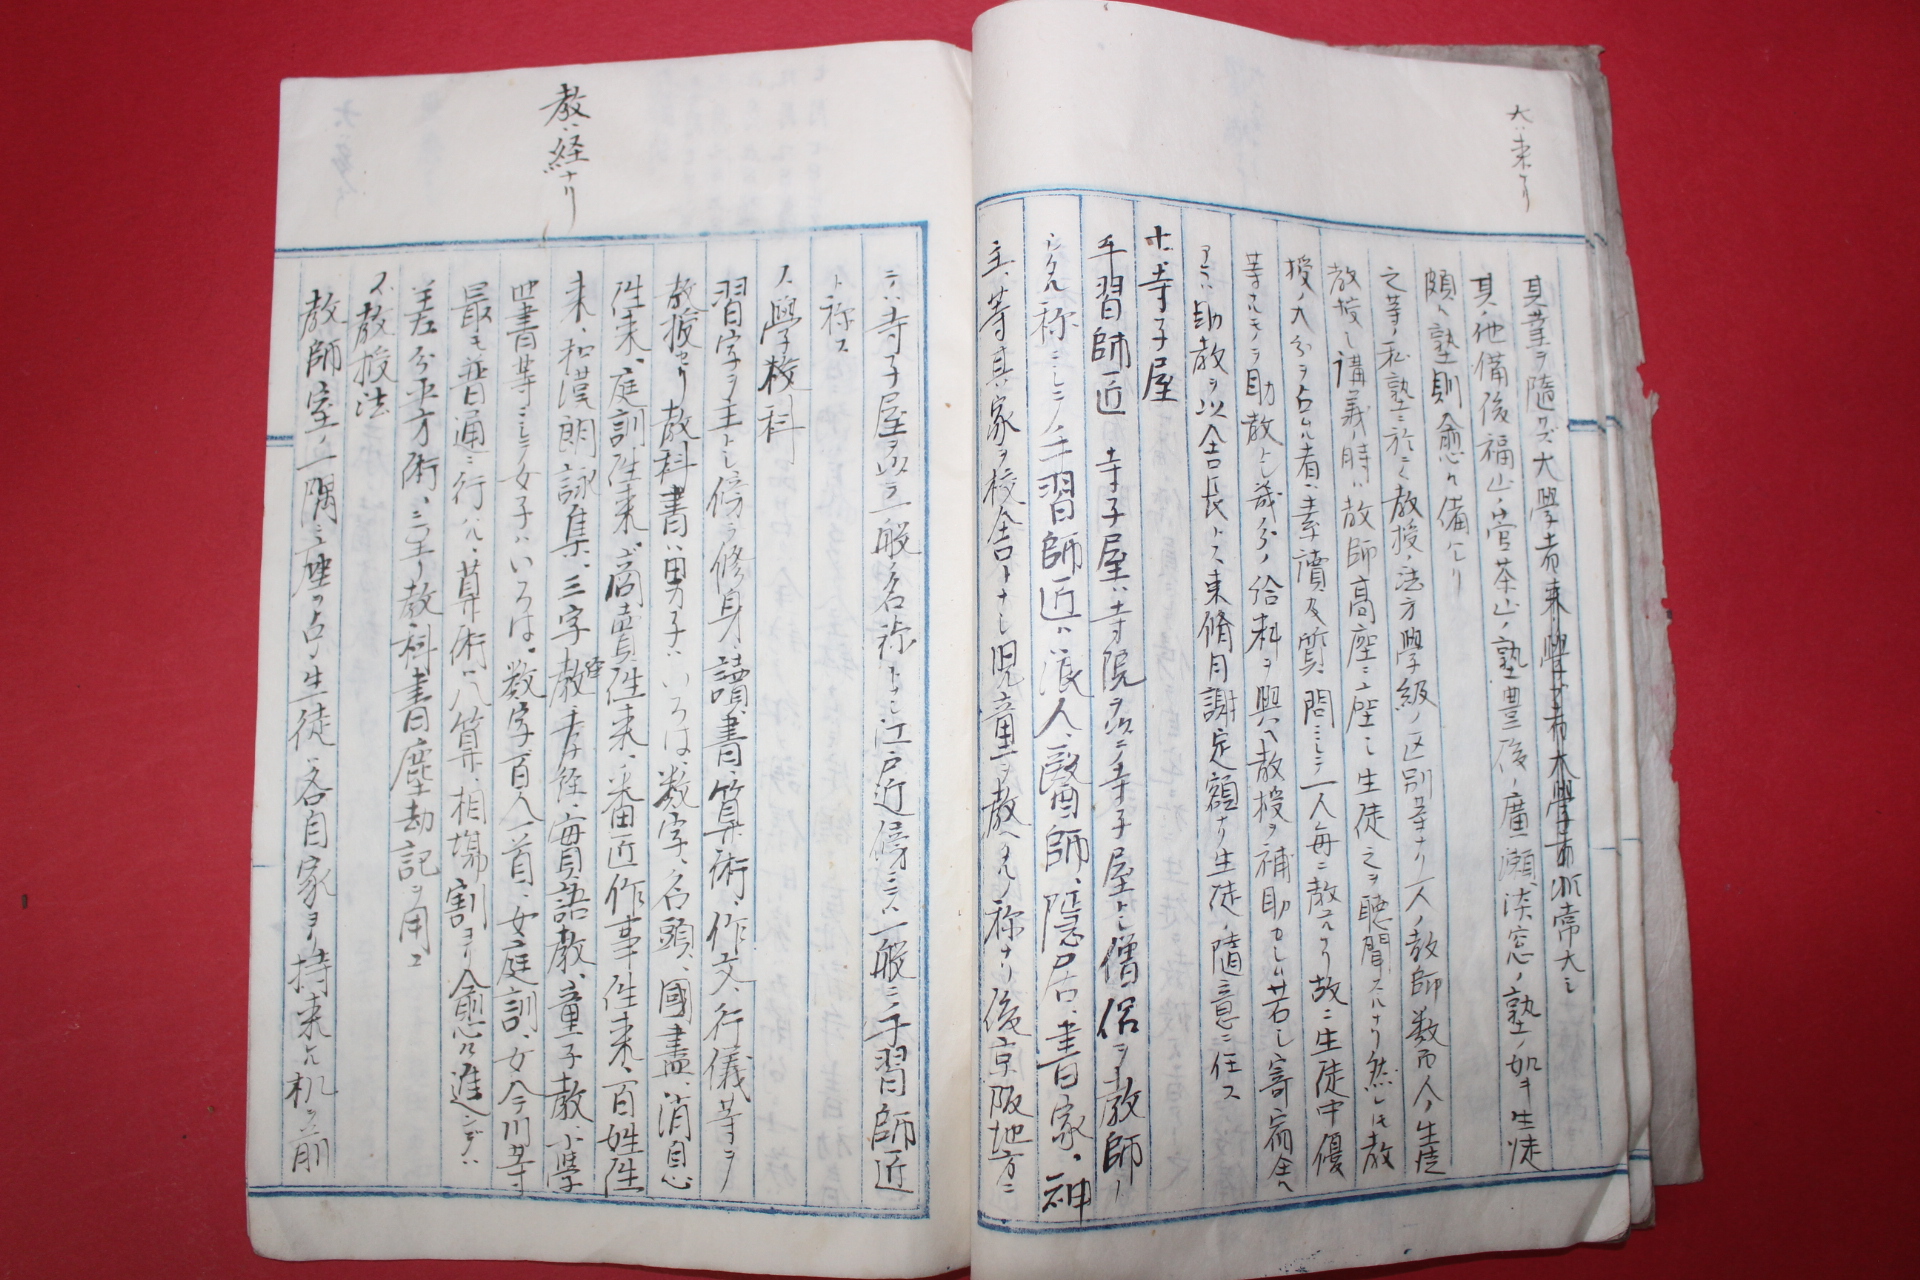 大ハ来ナリ
其業ヲ随ヘズ大學者来
其ノ他備後福山ノ菅茶山ノ塾豊後ノ廣瀬淡窓ノ塾ノ如キ生徒
頗ル塾則愈々備レリ
之等ノ私塾ニ於ミ教授ノ法方學級ノ区別等ナリ一人ノ教師数百人ノ生徒
教授シ講義ノ時ハ教師高座ニ座シ生徒之ヲ聴聞スルナリ然レ共教
授ノ大分ヲ占ル者ハ素讀及質問ニシテ一人毎ニ教エタリ故ニ生徒中優
等ナルモノヲ助教トシ幾分ノ給料ヲ興ヘ教授ヲ補助セシム若シ寄宿舎
アラバ助教ヲ以舎長トス束脩月謝定額ナク生徒ノ随意ニ任ス
十、寺子屋
手習師匠 寺子屋ハ寺院ヲ以テ寺子屋トシ僧侶ヲ教師ノ
名称ニシテ手習師匠ハ浪人、醫師、隠居、書家、神
主、等其ノ家ヲ校舎トナシ児童ヲ教ヘタル称ナリ後京阪地方ニ
教ハ経ナリ
テハ寺子屋ヲ以テ一般名称トナシ江戸近傍ニテハ一般ニ手習師匠
ト称ス
ス學校科
習字ヲ主トシ傍ラ修身、讀書、算術、作文、行儀等ヲ
教授セリ教科書ハ男子ハいろは、数字、名頭、國盡、消息
往来、庭訓往来、商賣往来、番匠作事往来、百姓往
来、和漢朗詠集、三字教、孝経、實語教、童子教、小學
四書等ニシテ女子ハいろは、数字百人一首、女庭訓、女今川等
最モ普通ニ行ハル、算術ハ八算、相場割ヨリ愈々進ンデハ
差分平方術ニ至リ教科書塵劫記ヲ用エ
ズ教授法
教師室ノ一隅ニ座ヲ占メ生徒ハ各自家ヨリ持来レル机ヲ前